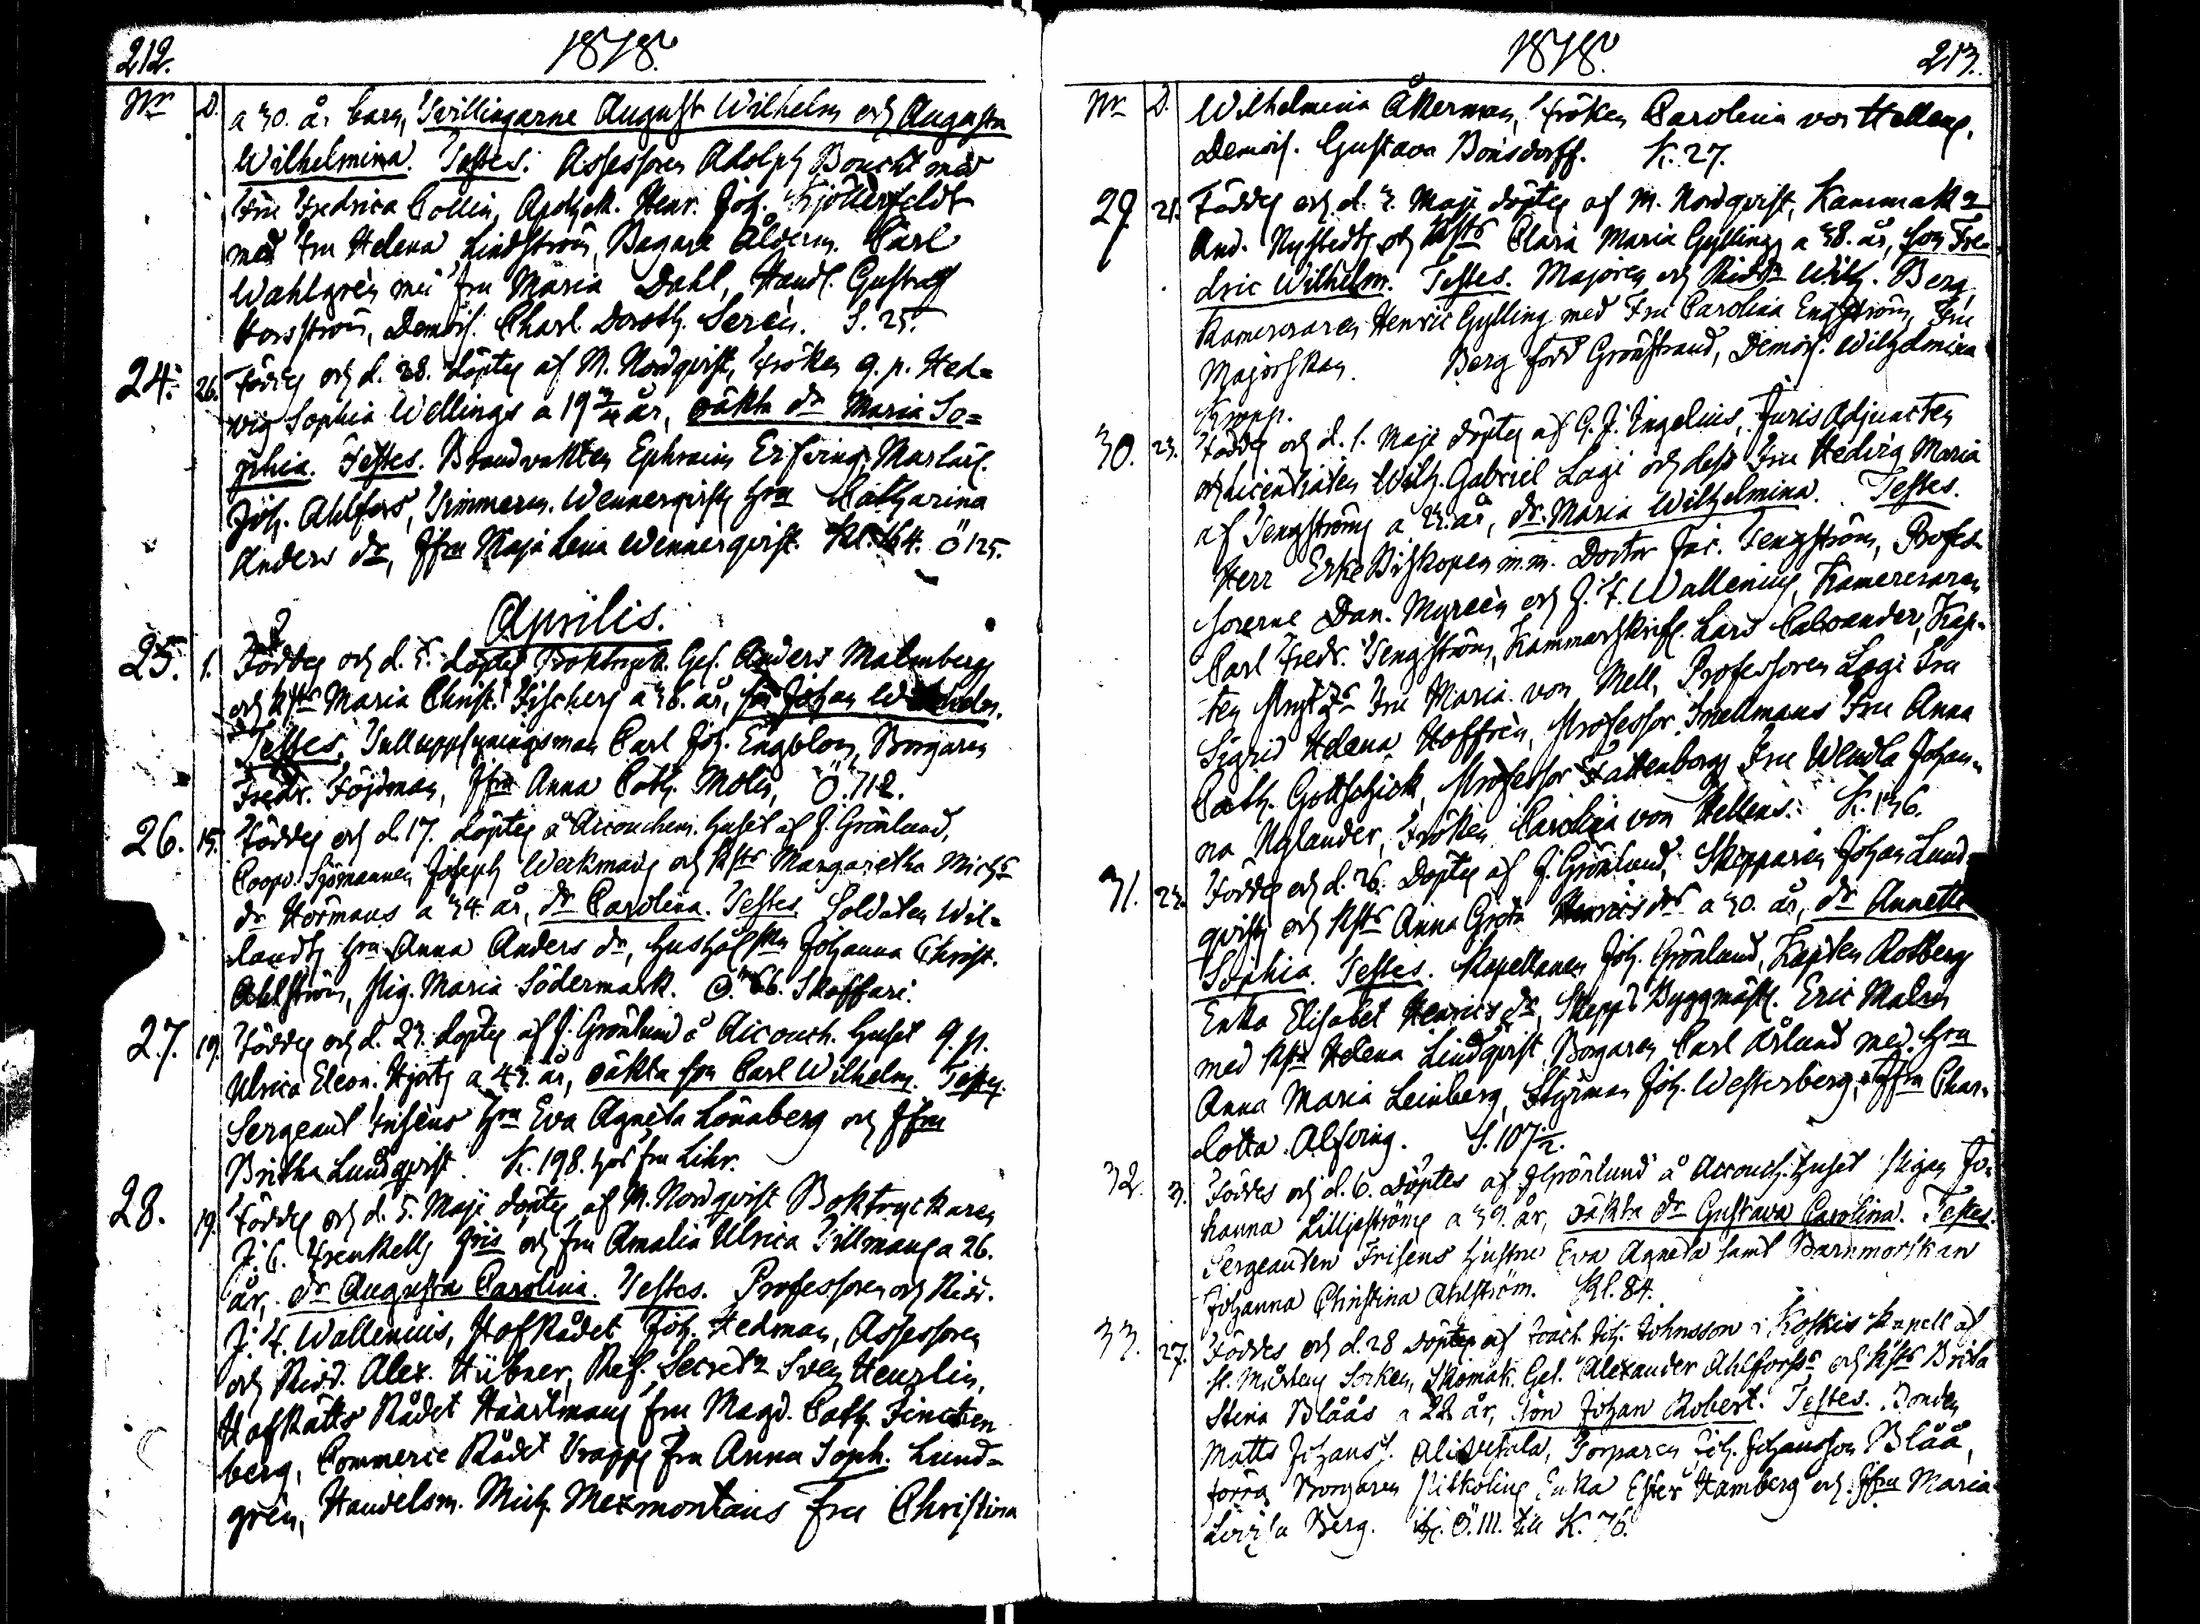 212.
1818.
Nr D.
a 30. år barn, Tvillingarne August Wilhelm och Augusta
Wilhelmina. Testes: Assessoren Adolph Boucht med
Fru Fredrica Collin, Apothek. Henr. Joh.
med Fru Helena Lindström, Bagare Ålderm. Carl
Wahlgrén med Fru Maria Dahl, Handl. Gustaf
Demois. Charl. Doroth. Serèn. S. 25.
24. 26. Föddes och d. 28. döptes af M. Nordqvist, Fröken q. p. Hed=
vig Sophia Wellings a 19 3/4 år, oäkta dr Maria So=
phia. Testes. Brandvakten Ephraim Erfving,
Joh. Ahlfors, Timmerm. Wennerqvists hru Catharina
Anders dr, Jfru Maja Lena Wennerqvist. Kl. 164. Ö 125.
Aprilis.
25. 1. Föddes och d. 5. döptes Boktryck. Ges. Anders Malmberg
och Hstr Maria Christ. Fischers a 36. år, son Johan Wilhelm.
Testes. Tulluppsyningsman Carl Joh. Engblom, Borgaren
Fredr. Föjdman, Jfru Anna Cath. Molin, Ö. 112.
26. 15. Föddes och d. 17. döptes å Accouchem. huset af J. Grönlund,
Coopv. Sjömannen Joseph Werkmans och Hstr Margaretha Michs
dr Hörmans a 34. år, dr Carolina. Testes. Soldaten Wil=
landts hru Anna Anders dr, hushålskn Johanna Christ.
Ahlström, Pig. Maria Södermark. Ö. 66. Skaffari.
27. 19. Föddes och d. 23. döptes af J. Grönlund å Accouch. huset q. p.
Ulrica Eleon. Hjorts a 43. år, oäkta son Carl Wilhelm. Testes.
Sergeant Frisens hru Eva Agneta Lönnberg och Jfru
Britha Lundqvist. K. 198. hos fru Lihr.
28. 19. Föddes och d. 5. Maji döptes af M. Nordqvist Boktryckaren
J. C. Frenkells Gris och fru Amalia Ulrica Tillmans a 26.
år, dr Augusta Carolina. Testes. Professoren och Ridd.
J. F. Wallenius, Hof Rådet Joh. Hedman, Assessoren
och Ridd. Alex. Hübner, Ref. Secret. Sven Heurlin,
HofRätts Rådet Haartmans fru Magd. Cath. Finckenberg,
Commercie Rådet Trapps fru Anna Soph. Lund=
grén, Handelsm. Mich. Mexmontans fru Christina
1818.
213.
Nr D.
Wilhelmina Åkerman, Fröken Carolina von Hellens,
Demois. Gustava Bonsdorff. K. 27.
29. 21. Föddes och d. 3. Maji döptes af M. Nordqvist, Kammak
And. Nystedts och Hstr Clara Maria Gyllings a 38. år, son Fre=
dric Wilhelm. Testes. Majoren och Riddr Wilh. Berg,
Kamereraren Henric Gylling med Fru Carolina Engström, Fru
Majorskan. Berg född Grönstrand, Demois. Wilhelmina
Kropp.
30. 23. Föddes och d. 1. Maji döptes af G. J. Ingelius, Juris Adjuncten
och Licentiaten Wilh. Gabriel Lagi och dess Fru Hedvig Maria
af Tengströms a 23. år, dr. Maria Wilhelmina. Testes.
Herr ErkeBiskopen m.m. Doctor Jac. Tengström, Profes=
sorerne Dan. Myreèn och J. F. Wallenius, Kamereraren
Carl Fredr. Tengström, Kammarskrifv. Lars Calvander, Kap=
ten Fru Maria von Mell, Professoren Lagi Fru
Sigrid Helena Hoffrèn, Professor Snellmans Fru Anna
Cath. Gottschick, Professor Fattenborgs Fru Wendla Johan=
na Nylander, Fröken Carolina von Hellens. K. 136.
31. 23. Föddes och d. 26. Döptes af J. Grönlund, Skepparen Johan Lund=
qvists och Hstr Anna Greta Henricsdrs a 30. år, dr Annette
Sophia. Testes. Kapellanen Joh. Grönlund, Kapten Rotbergs
Enka Elisabet Henrics dr, Skepps Byggmäst. Eric Malm
med Hstr Helena Lindqvist, Borgaren Carl Ählund med hru
Anna Maria Leinberg, Styrman Joh. Westerberg, Jfru Char=
lotta Alfving. S. 107 1/2.
32. 3. Föddes och d. 6. Döptes af J. Grönlund å Accouch. huset Pigan Jo=
hanna Lilljeströms a 39. år, oäkta dr Gustava Carolina. Testes.
Sergeanten Frisens hustru Eva Agneta samt Barnmorskan
Johanna Christina Ahlström. Kl. 84.
33. 27. Föddes och d. 28 döptes af Johnsson i Koskis Kapell af
St. Mårtens Socken, Skomak. Ges. Alexander Ahlforss och Hstr Brita
Stina Blåås a 22 år, son Johan Robert. Testes. Bonden
Matts Johanss. Alivetula, Torparen Joh. Johansson Blåå,
förra Borgaren Enka Ester Hamberg och Jfru Maria
Lovisa Berg. Ö. 111. till K. 76.